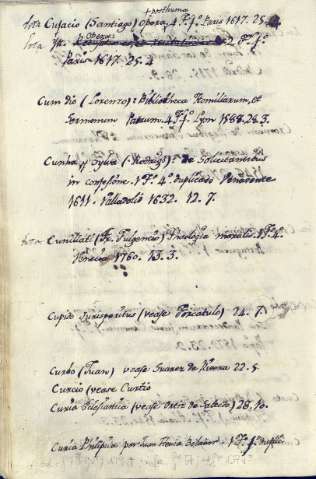 posthuma
Cujacio (Santiago) Opera, 4. fº. Paris 1617. 25.
Paris 1617. 25. 4
Cum dio (Lorenzo): Bibliotheca Homiliarum, et
Sermonum Patrum. 4. fº. Lyon 1588. 28. 3.
Cunha y Sylva (Rodrigº) de Solicitantibus
in confesione. 1. Tº. 4. duplicado
1611. Valladolid 1632. 12. 7.
Cuniliati (Fr. Fulgencio) Theologia moralis 1. Tº. 4.
Venecia 1760. 13. 3.
Cupido Jurisperitus (vease Torcatulo) 24. 7.
Curbo (Juan) vease Suarez de Rivera 22. 5
Curcio (vease Curtio
Curia Eclesiastica (vease Ortiz de Salcedo) 28. 10.
Curia Philipica por Juan Hevia Bolaños: 1. Tº. fº. duplº.